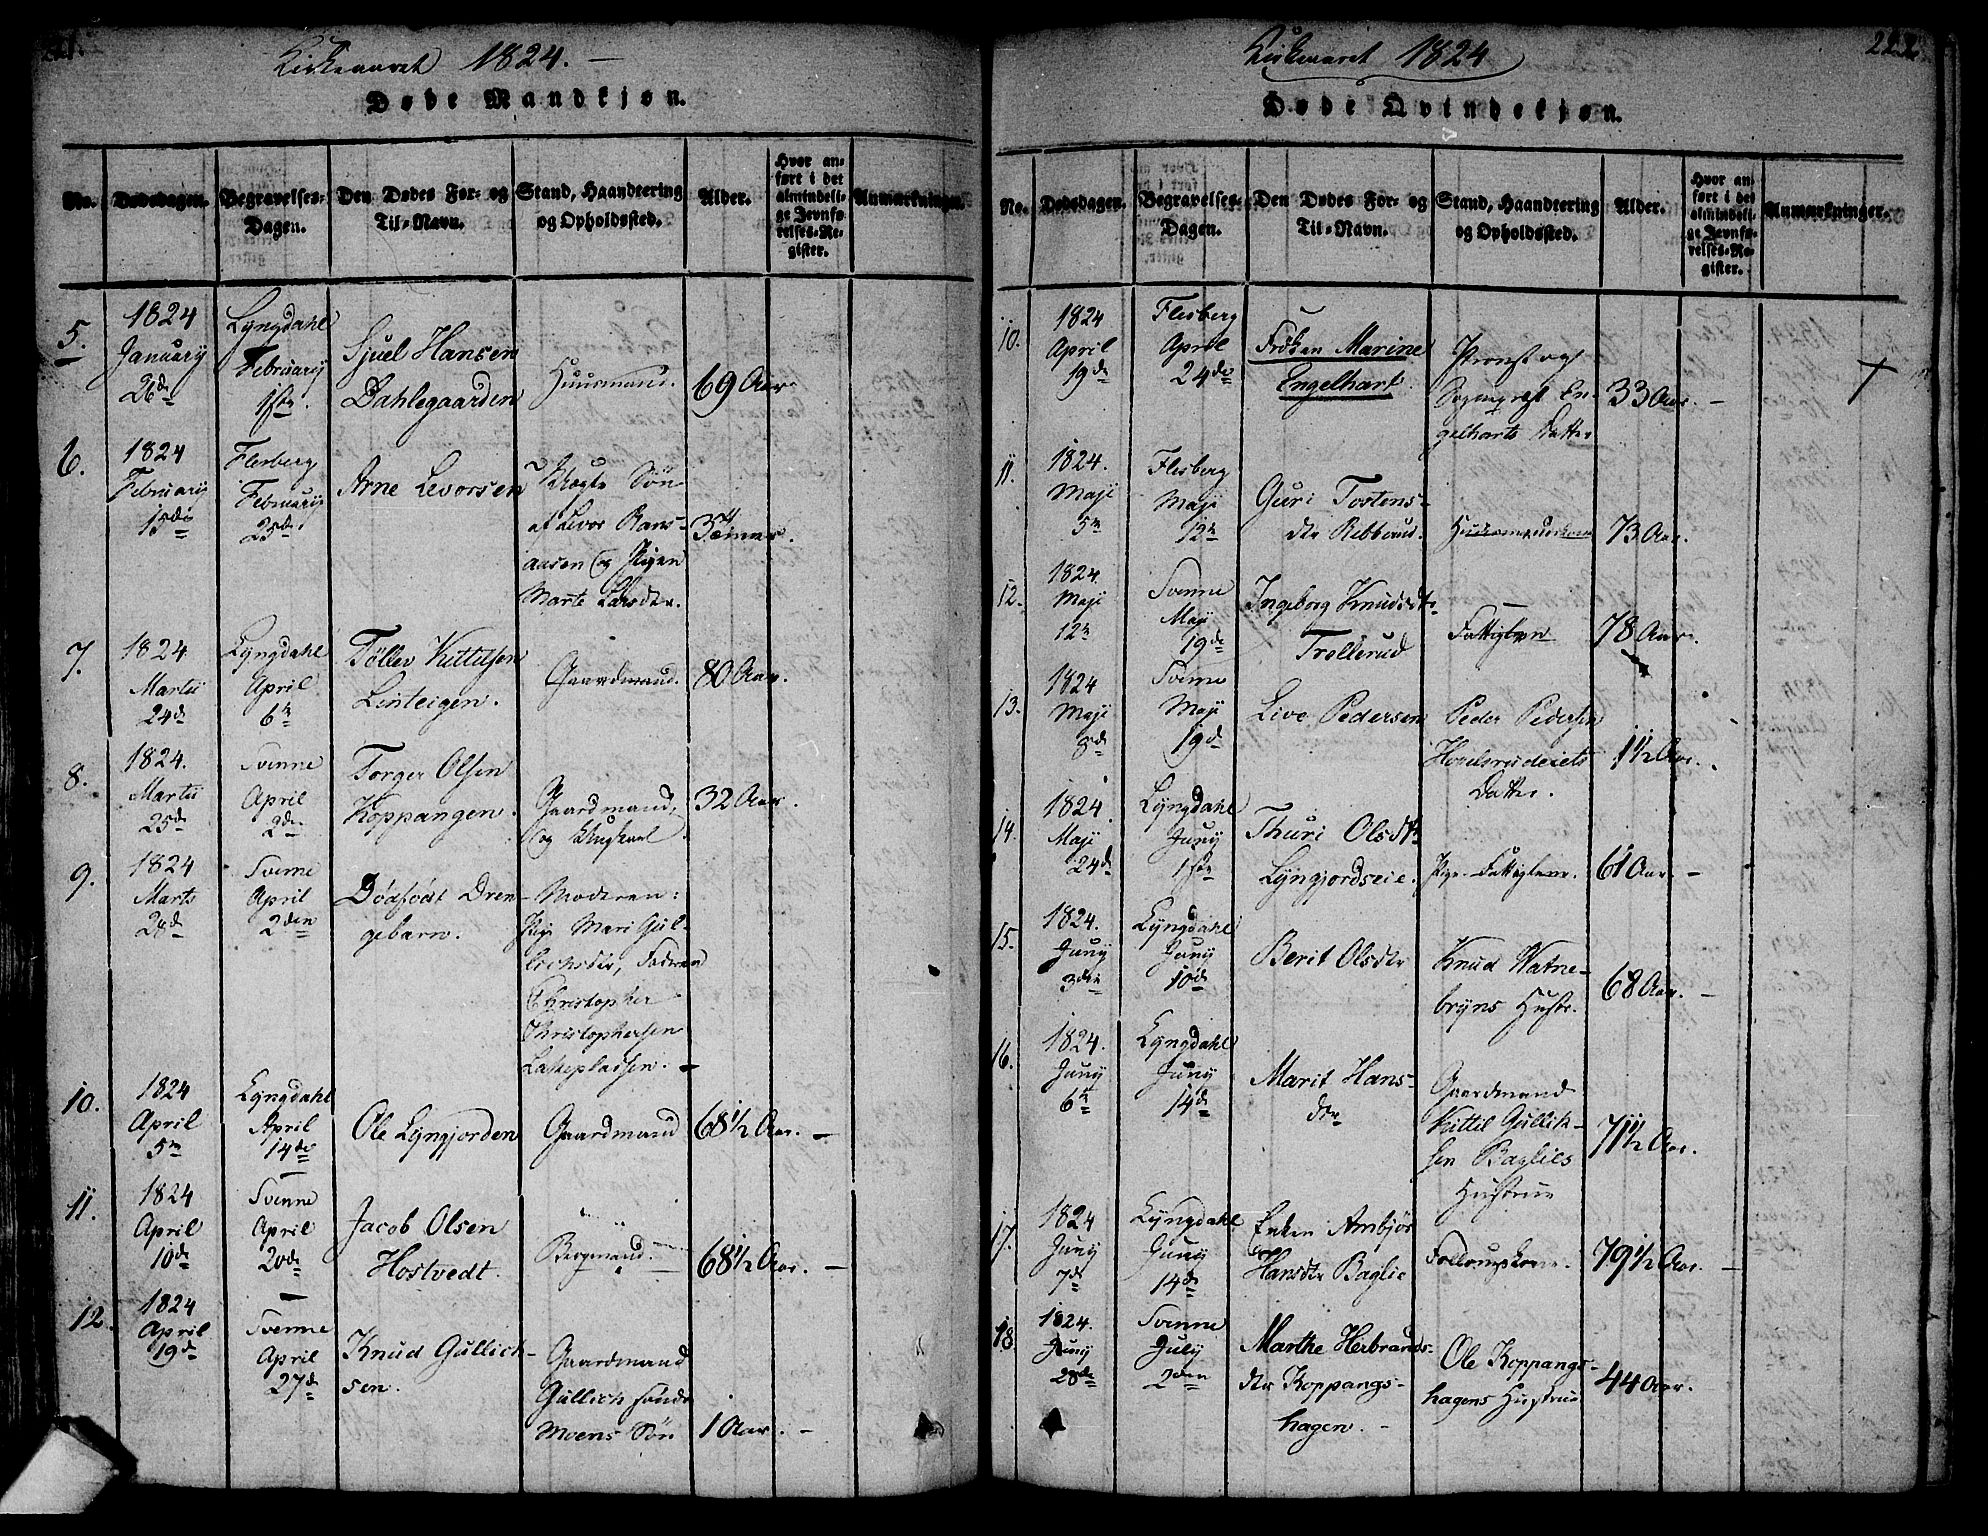 Kirkeaaret 1824.
Døde Mandkjøn.
No.
Dødsdagen.
Begravelses-
Dagen.
Den Dødes For- og
Til-Navn.
Stand, Haandtering
og Opholdssted.
Alder.
Hvor an-
ført i det
almindeli-
ge Jevnfø-
relses-Re-
gister.
Anmærkninger.
5.
1824
January
26de
Lyngdahl
Februarij
1ste.
Sjuel Hansen
Dahlegaarden
Huusmand.
69 Aar
6.
1824
February
15de
Flesberg
Februarij
25de
Arne Levorsen
Uægte Søn
af Levor Rans-
aasen og Pigen
Marte Larsdtr.
7.
1824
Martii
24de
Lyngdahl
April
6te
Tøllev Kittilsen
Linteigen.
Gaardmand.
80 Aar.
8.
1824.
Martii
25de
Svenne
April
2den
Torger Olsen
Koppangen.
Gaardmand,
og
32 Aar.
9.
1824
Marts
28de
Svenne
April
2den
Dödfödt Dren-
gebarn.
Moderen:
Pige Mari Gul-
lichsdtr, Faderen
Christopher
Christophersen
Lakepladsen. -
10.
1824
April
5te
Lyngdahl
April
14de
Ole Lyngjorden
Gaardmand
68 1/2 Aar. -
11.
1824
April
10de
Svenne
April
20de
Jacob Olsen
Hostvedt.
Bergmand.
68 1/2 Aar. -
12.
1824
April
19de
Svenne
April
27de
Knud Gullich-
sen.
Gaardmand
Gullich
Moens Søn
1 Aar. -
222.
Kirkeaaret 1824
Døde Qvindekjøn.
No.
Dødsdagen.
Begravelses-
Dagen.
Den Dødes For- og
Til-Navn.
Stand, Haandtering
og Opholdssted.
Alder.
Hvor an-
ført i det
almindeli-
ge Jevnfø-
relses-Re-
gister.
Anmærkninger.
10.
1824
April
19de
Flesberg
April
24de
Frøken Marine
Engelhart.
Provst og
Sognepræst En-
gelharts Datter
33 Aar. -
11.
1824.
Maji
5te
Flesberg
Maji
12te
Guri Tostens-
dtr Ribberud.
73 Aar.
12.
1824.
Maji
12te
Svenne
Maji
19de
Ingeborg Knudsdtr
Trollerud
Fattiglem
78 Aar.
13.
1824
Maji
8de
Svenne
Maji
19de
Live Pedersen
Peder Pedersen
Hovelsrudeiets
Datter.
1 1/2 Aar.
14.
1824.
Maji
24de
Lyngdahl
Juny
1ste
Thuri Olsdtr
Lyngjordseie.
Pige. Fattiglem.
61 Aar. -
15.
1824.
Juny
3die
Lyngdahl
Juny
10de
Berit Olsdtr
Knud Vatne-
bryns Hustr.
68 Aar. -
16.
1824.
Juny
6te
Lyngdahl
Juny
14de
Marit Hans-
dtr
Gaardmand
Kittil Gullich-
sen Baglies
Hustrue
71 1/2 Aar.
17.
1824
Juny
7de
Lyngdahl
Juny
14de
Enken Ambjør
Hansdtr Baglie
79 1/2 Aar. -
18.
1824.
Juny
28de
Svenne
July
2den
Marthe Herbrands-
dtr Koppangs-
hagen. -
Ole Koppangs-
hagens Hustrue
44 Aar.